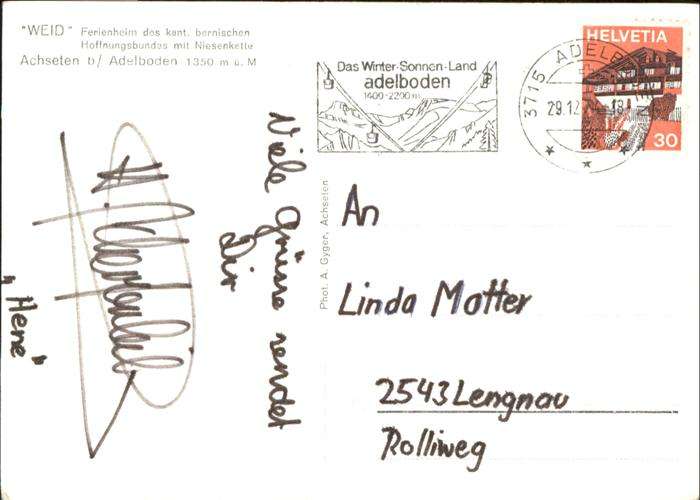 "WEID" Ferienheim des kant. bernischen
Hoffnungsbundes mit Niesenkette
Achseten b/ Adelboden 1350 m ü. M
Das Winter-Sonnen-Land
adelboden
1400-2200 m
3715 ADELBODEN
29.12
18
HELVETIA
30
Phot. A. Gyger, Achseten
Viele Grüsse sendet
Dir
„Hene"
An
Linda Matter
2543 Lengnau
Rolliweg